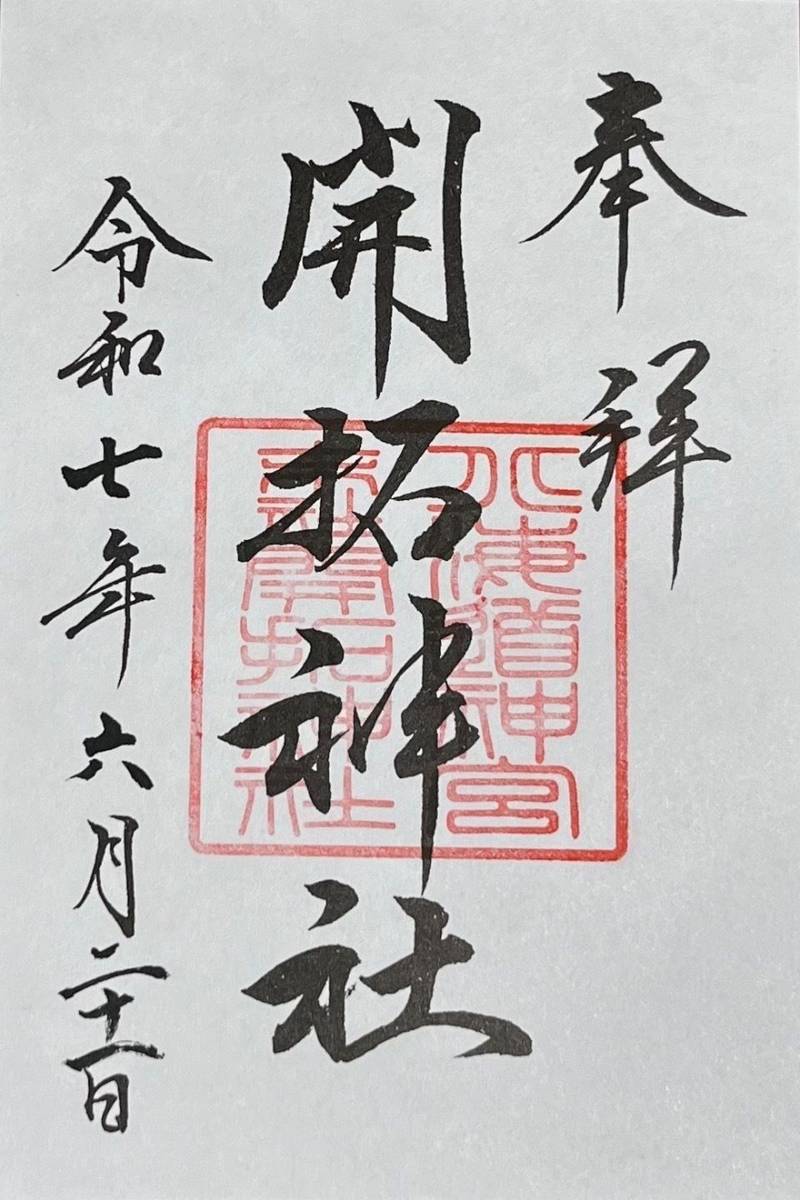 奉拝
開拓神社
北海道神宮
末社開拓神社
令和七年六月二十一日